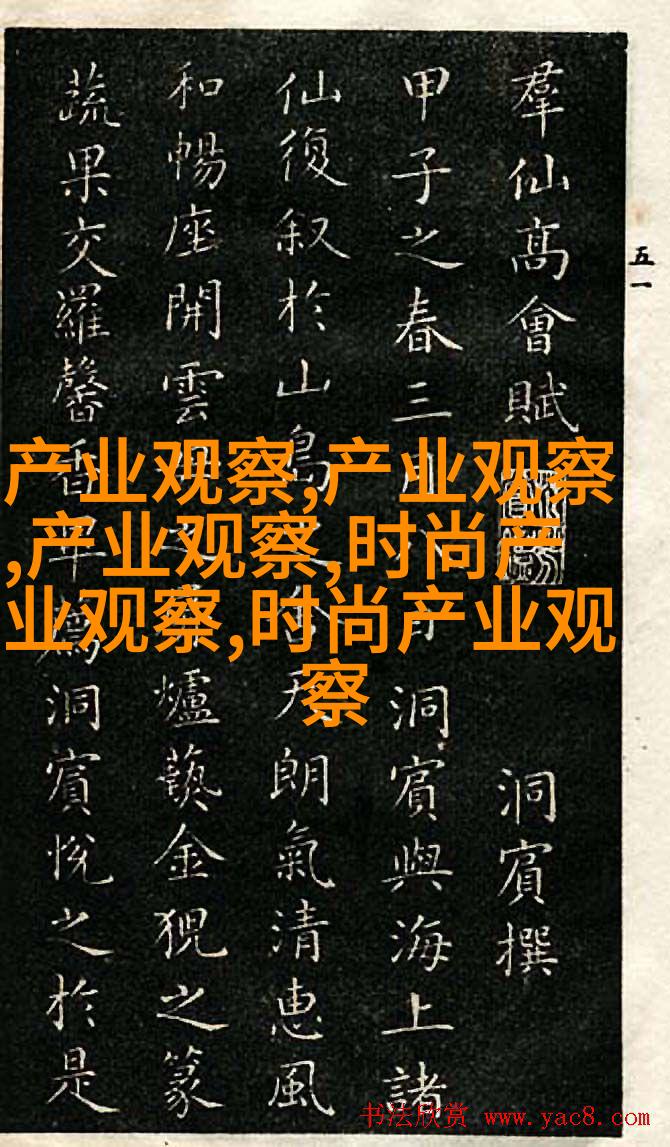 羣仙高會賦
洞賓撰
甲子之春三月八日洞賓與海上諸
仙復叙於山島
朗氣清惠風
和暢座開雲
爐藝金猊之篆
蔬果交羅馨香畢薦洞賓悅之於是
五一
产业观察,产业观察
,产业观察,时尚产
业观察,时尚产业观
察
书法欣赏 www.yac8.com